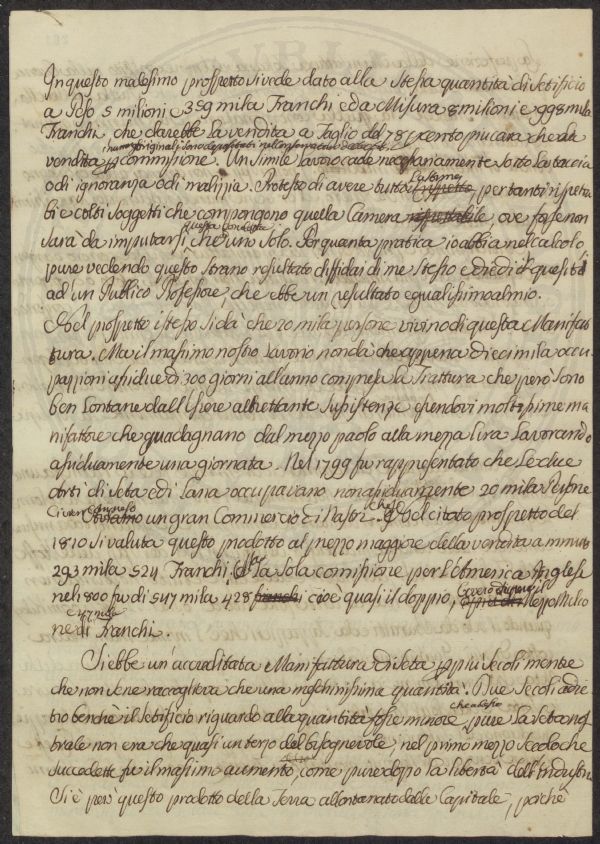 In questo medesimo prospetto si vede dato alla stessa quantità di Setificio
a Peso 5 milioni e 359 mila Franchi ed a Misura 8 milioni e 998 mila
Franchi che darebbe la vendita a Taglio del 78 p cento piu cara che da
i numeri originali sono depositati
vendita p commissione. Un simile lavoro cade necessariamente sotto la taccia
o di ignoranza o di malizzia. Protesto di avere tutta la stima per tanti rispetta
bi e colti Soggetti che compongono quella Camera ove forse non
questa condotta
sarà da imputarsi che uno solo. Per quanta pratica io abbia nel calcolo
pure vedendo questo strano resultato diffidai di me stesso e diedi i quesiti
ad un Publico Professore, che ebbe un resultato egualissimo al mio.
Nel prospetto istesso si dà che 20 mila persone vivino di questa Manifat
tura. Ma il massimo nostro lavorio non dà che appena dieci mila occu
pazzioni assidue di 300 giorni all anno compresa la Trattura che però sono
ben lontane dall essere altrettante sussistenze essendovi moltissime ma
nifattore che guadagnano dal mezzo paolo alla mezza lira lavorando
assiduamente una giornata. Nel 1799 fu rappresentato che le due
arti di Seta e di Lana occupavano non assiduamente 20 mila Persone
Ci vien un gran Commercio di Nastri. Nel citato prospetto del
1810 si valuta questo prodotto al prezzo maggiore della vendita a minuto
293 mila 524 Franchi. La sola comissione per l'America Inglese
nel 1800 fu di 547 mila 428 cioè quasi il doppio,
47 mila
ne di Franchi.
Si ebbe un accreditata Manifattura di Seta p più secoli mentre
che non se ne raccoglieva che una meschinissima quantità. Due secoli adie
tro benchè il Setificio riguardo alla quantità fosse minore, pure la Seta no
strale non era che quasi un terzo del bisognevole, nel primo mezzo secolo che
succedette fu il massimo aumento, come pure doppo la libertà dell Industria
Si è però questo prodotto della Terra allontanato dalle Capitale, poichè